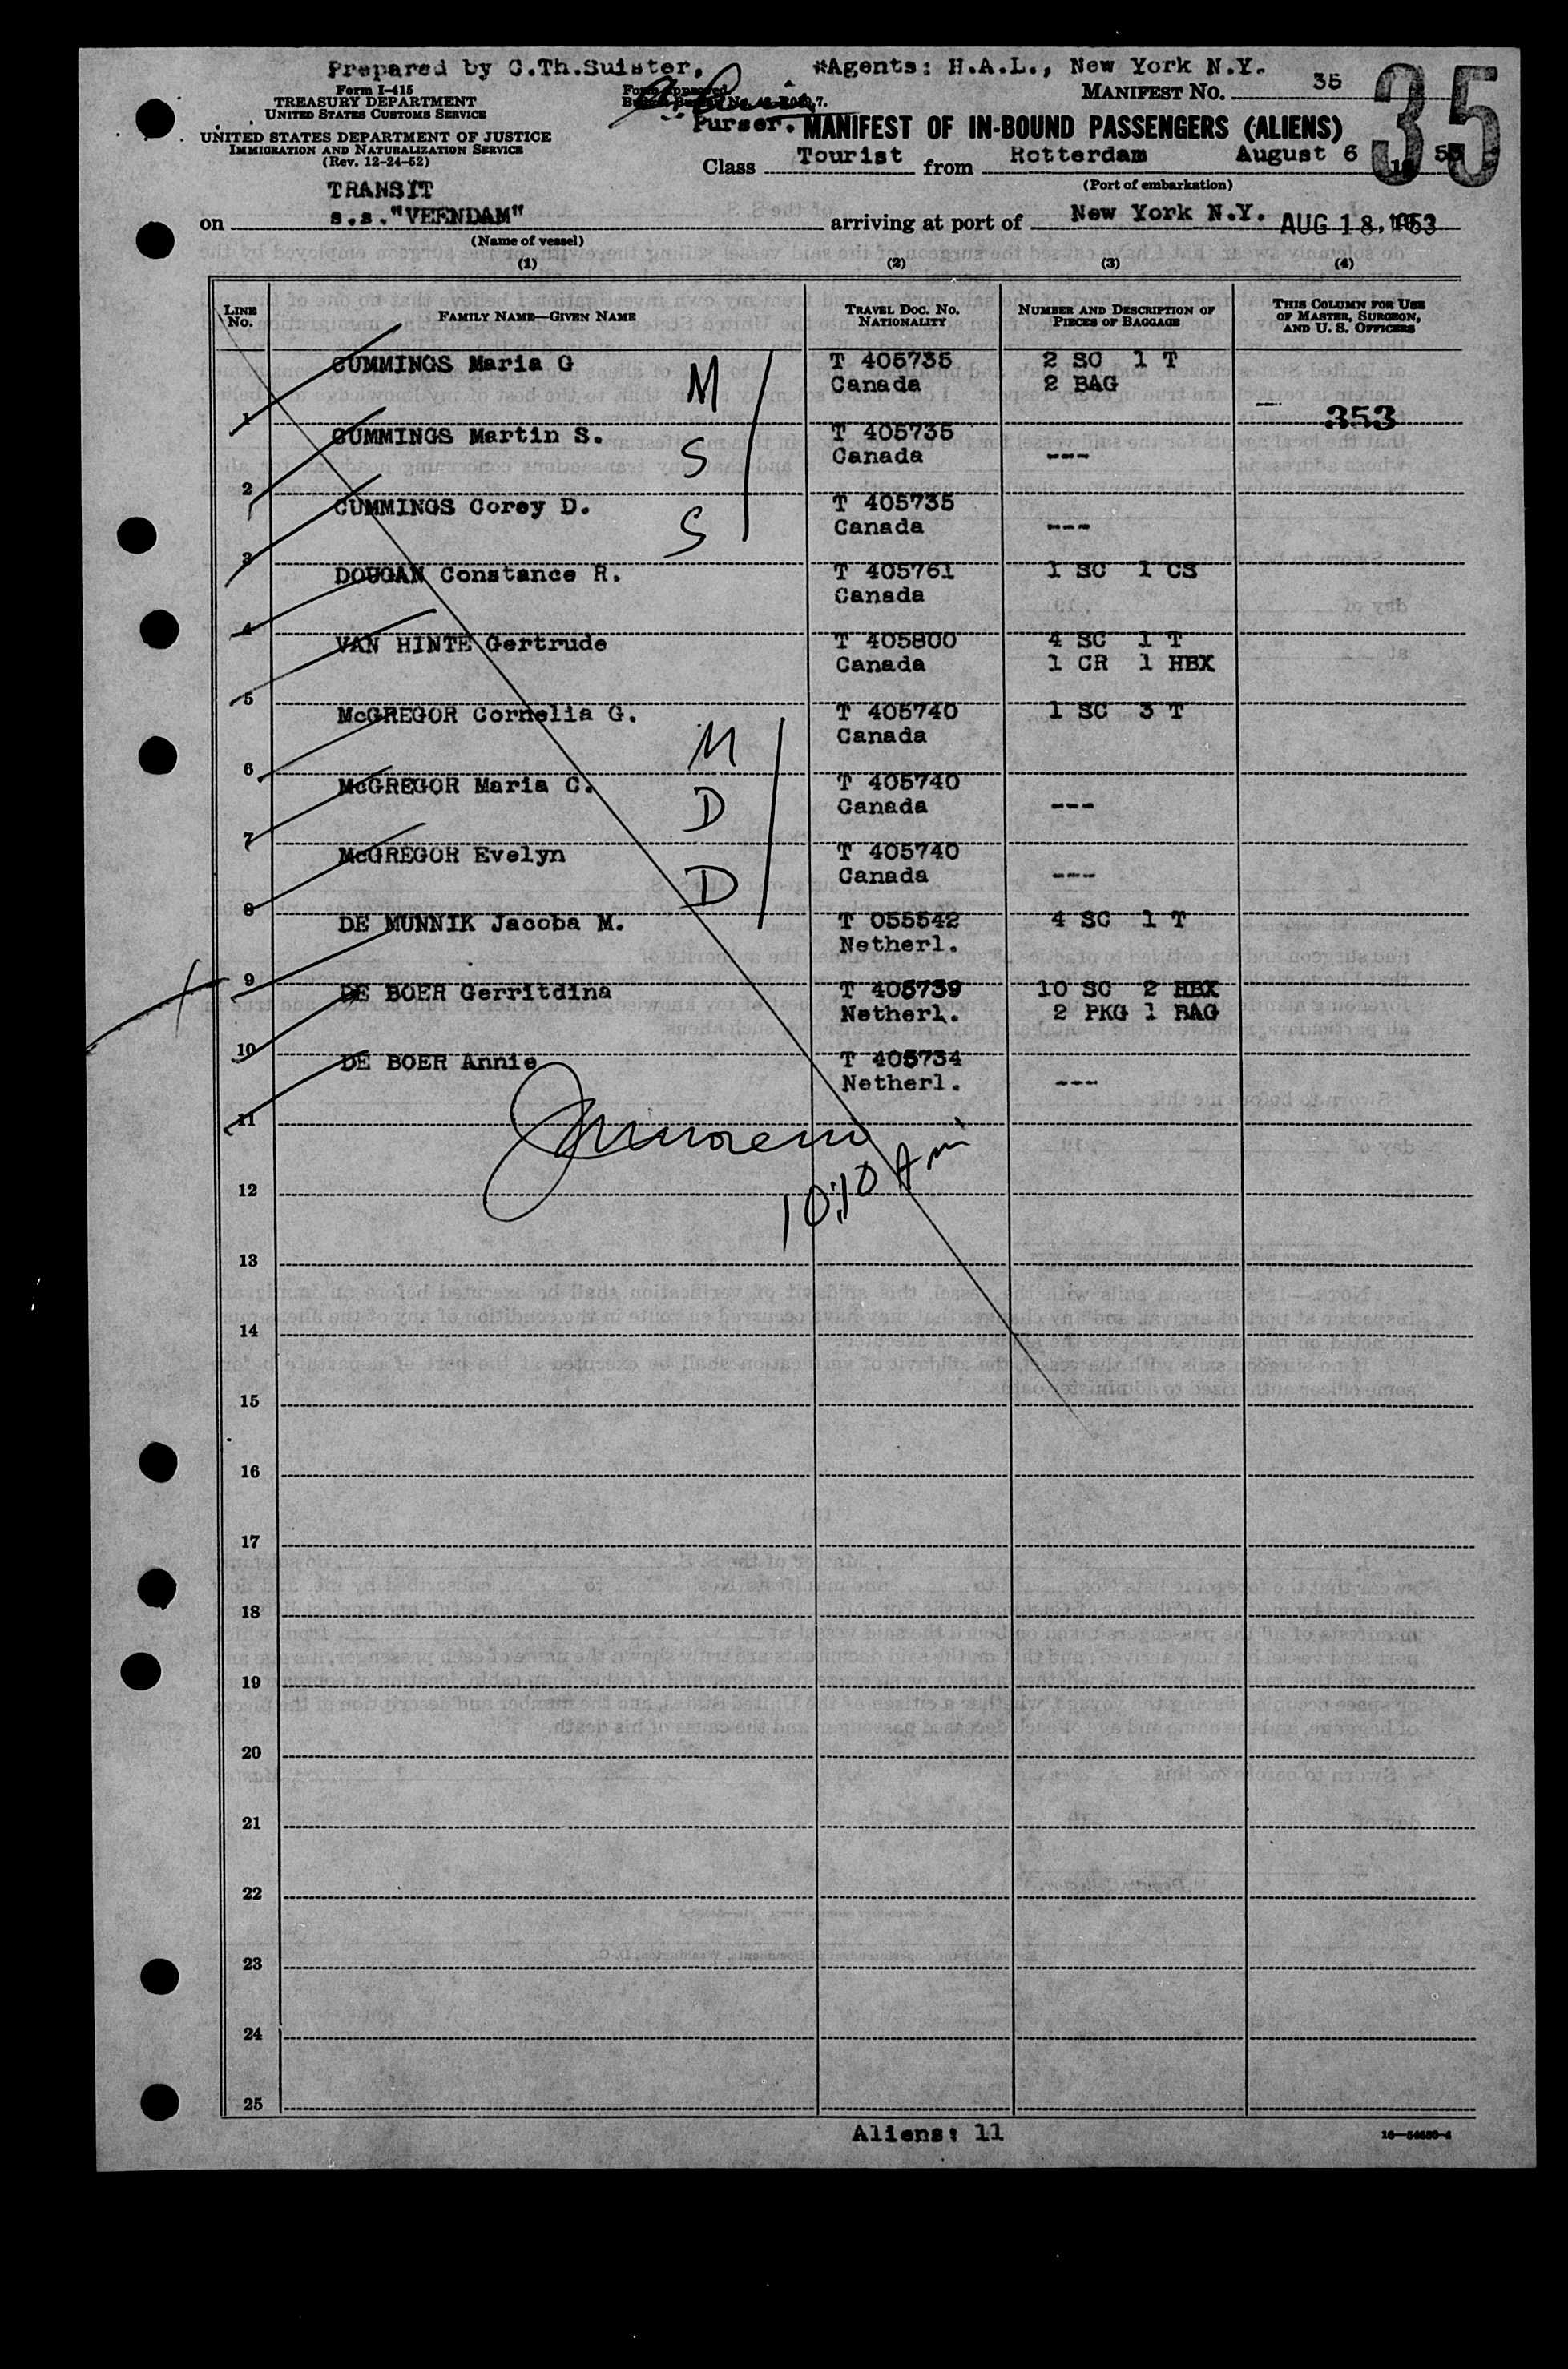 Prepared by C.Th.Suister,
*Agents: H.A.L., New York N.Y.
Form I-415
TREASURY DEPARTMENT
UNITED STATES CUSTOMS SERVICE
UNITED STATES DEPARTMENT OF JUSTICE
IMMIGRATION AND NATURALIZATION SERVICE
(Rev. 12-24-52)
Form approved
Purser.
MANIFEST NO. 35
35
MANIFEST OF IN-BOUND PASSENGERS (ALIENS)
Class Tourist from Rotterdam August 6
(Port of embarkation)
TRANSIT
on s.s."VEENDAM" arriving at port of New York N.Y. AUG 18, 1953
(Name of vessel)
(1) (2) (3) (4)
LINE No. FAMILY NAME—GIVEN NAME TRAVEL DOC. NO. NATIONALITY NUMBER AND DESCRIPTION OF PIECES OF BAGGAGE THIS COLUMN FOR USE OF MASTER, SURGEON, AND U. S. OFFICERS
1 CUMMINGS Maria G M T 405735 2 SC 1 T
Canada 2 BAG
353
2 CUMMINGS Martin S. S T 405735
Canada ---
3 CUMMINGS Corey D. S T 405735
Canada ---
4 DOUGAN Constance R. T 405761 1 SC 1 CS
Canada
5 VAN HINTE Gertrude T 405800 4 SC 1 T
Canada 1 CR 1 HBX
6 McGREGOR Cornelia G. M T 405740 1 SC 3 T
Canada
7 McGREGOR Maria C. D T 405740
Canada ---
8 McGREGOR Evelyn D T 405740
Canada ---
9 DE MUNNIK Jacoba M. T 055542 4 SC 1 T
Netherl.
10 DE BOER Gerritdina T 405739 10 SC 2 HBX
Netherl. 2 PKG 1 BAG
11 DE BOER Annie T 405734
Netherl. ---
10:10 Am
12
13
14
15
16
17
18
19
20
21
22
23
24
25
Aliens: 11